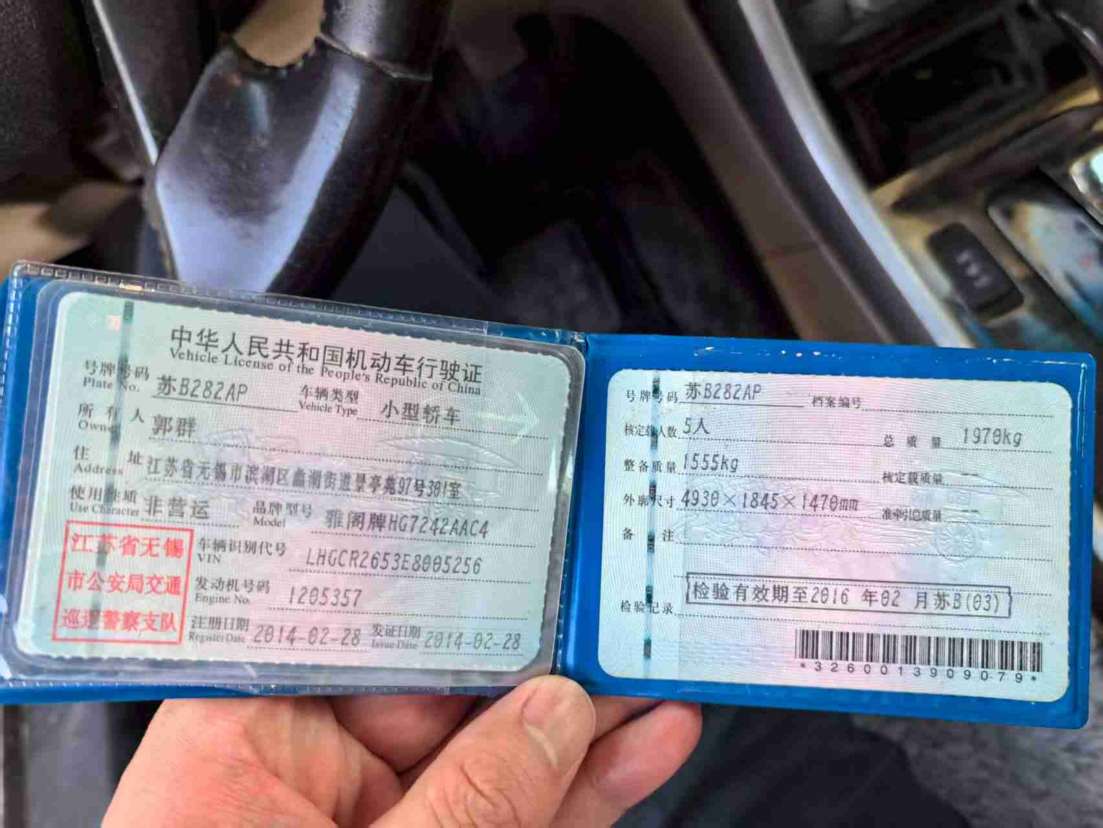 中华人民共和国机动车行驶证
Vehicle License of the People's Republic of China
号牌号码 苏B282AP 车辆类型 小型轿车
Plate No. Vehicle Type
所有人 郭群
Owner
住址 江苏省无锡市滨湖区蠡湖街道景亭苑97号301室
Address
使用性质 非营运 品牌型号 雅阁牌HG7242AAC4
Use Character Model
江苏省无锡
市公安局交通
巡逻警察支队
车辆识别代号 LHGCR2653E8005256
VIN
发动机号码 1205357
Engine No.
注册日期 2014-02-28 发证日期 2014-02-28
Register Date Issue Date
号牌号码 苏B282AP 档案编号
核定载人数 5人 总质量 1970kg
整备质量 1555kg 核定载质量 --
外廓尺寸 4930×1845×1470mm 准牵引总质量 --
备注
检验记录 检验有效期至2016 年02 月苏B(03)
*3260013909079*